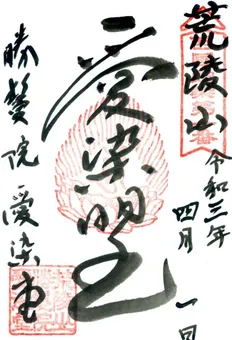 荒陵山
令和三年
四月
一日
愛染明王
勝鬘院 愛染堂